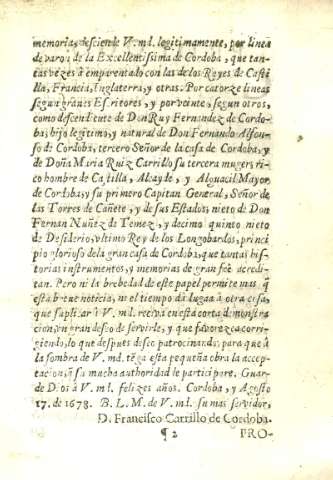 memoria, desciende V. md. legitimamente, por linea
de varon de la Excellentissima de Cordoba, que tan-
tas vezes à emparentado con las de los Reyes de Casti
lla, Francia, Inglaterra, y otras. Por catorze lineas
segun granes Escritores, y por veinte, segun otros,
como descendiente de Don Ruy Fernandez de Cordo-
ba, hijo legitimo, y natural de Don Fernando Alfon-
so de Cordoba, tercero Señor de la casa de Cordoba, y
de Doña Maria Ruiz Carrillo su tercera muger; ri-
co hombre de Castilla, Alcayde, y Alguacil Mayor
de Cordoba, y su primero Capitan General, Señor de
las Torres de Cañete, y de sus Estados, nieto de Don
Fernan Nuñez de Temez, y decimo quinto nieto
de Desiderio, vltimo Rey de los Longobardos, princi
pio glorioso de la gran casa de Cordoba, que tantas his-
torias instrumentos, y memorias de gran feè acredi-
tan. Pero ni la brebedad de este papel permite mas q̃
está breue noticia, ni el tiempo dà lugar à otra cosa,
que suplicar à V. md. reciva en esta corta demonstra
cion, vn gran deseo de servirle, y que favorezca corri-
giendo, lo que despues desee patrocinando; para que à
la sombra de V. md. tẽga esta pequeña obra la accep-
tacion, q̃ su mucha authoridad le participare. Guar-
de Dios à V. md. felizes años. Cordoba, y Agosto
17. de 1678. B. L. M. de V. md. su mas servidor,
D. Francisco Carrillo de Cordoba.
¶ 2 PRO-